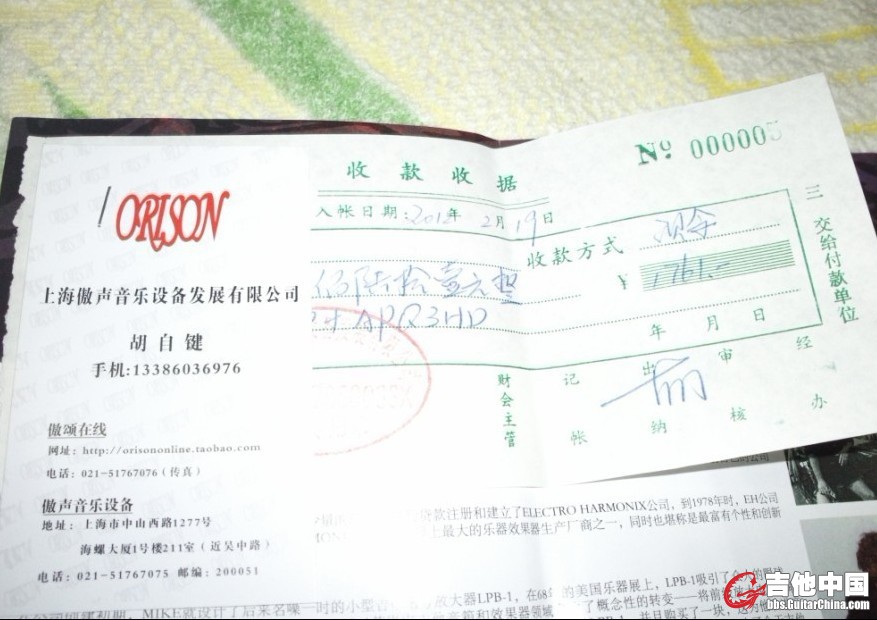 ORISON
上海傲声音乐设备发展有限公司
胡自键
手机:13386036976
傲颂在线
网址：http://orisononline.taobao.com
电话：021-51767076（传真）
傲声音乐设备
地址：上海市中山西路1277号
海螺大厦1号楼211室（近吴中路）
电话：021-51767075 邮编：200051
收款收据
№ 000005
入帐日期:2012年2月19日
收款方式 现金
佰陆拾壹元整
¥ 1761.-
APQ3HD
年 月 日
三 交给付款单位
财会主管
记帐
出纳
审核
经办
款注册和建立了ELECTRO HARMONIX公司，到1978年时，EH公司
上最大的乐器效果器生产厂商之一，同时也堪称是最富有个性和创新
放大器LPB-1，在68年的美国乐器展上，LPB-1吸引了
MIKE就设计了后来名噪一时的小型
音箱和效果器领域 了概念性的转变——将前
吉他中国
bbs.GuitarChina.com